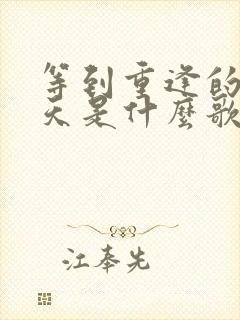 等到重逢的
天是什麼歌
江奉先